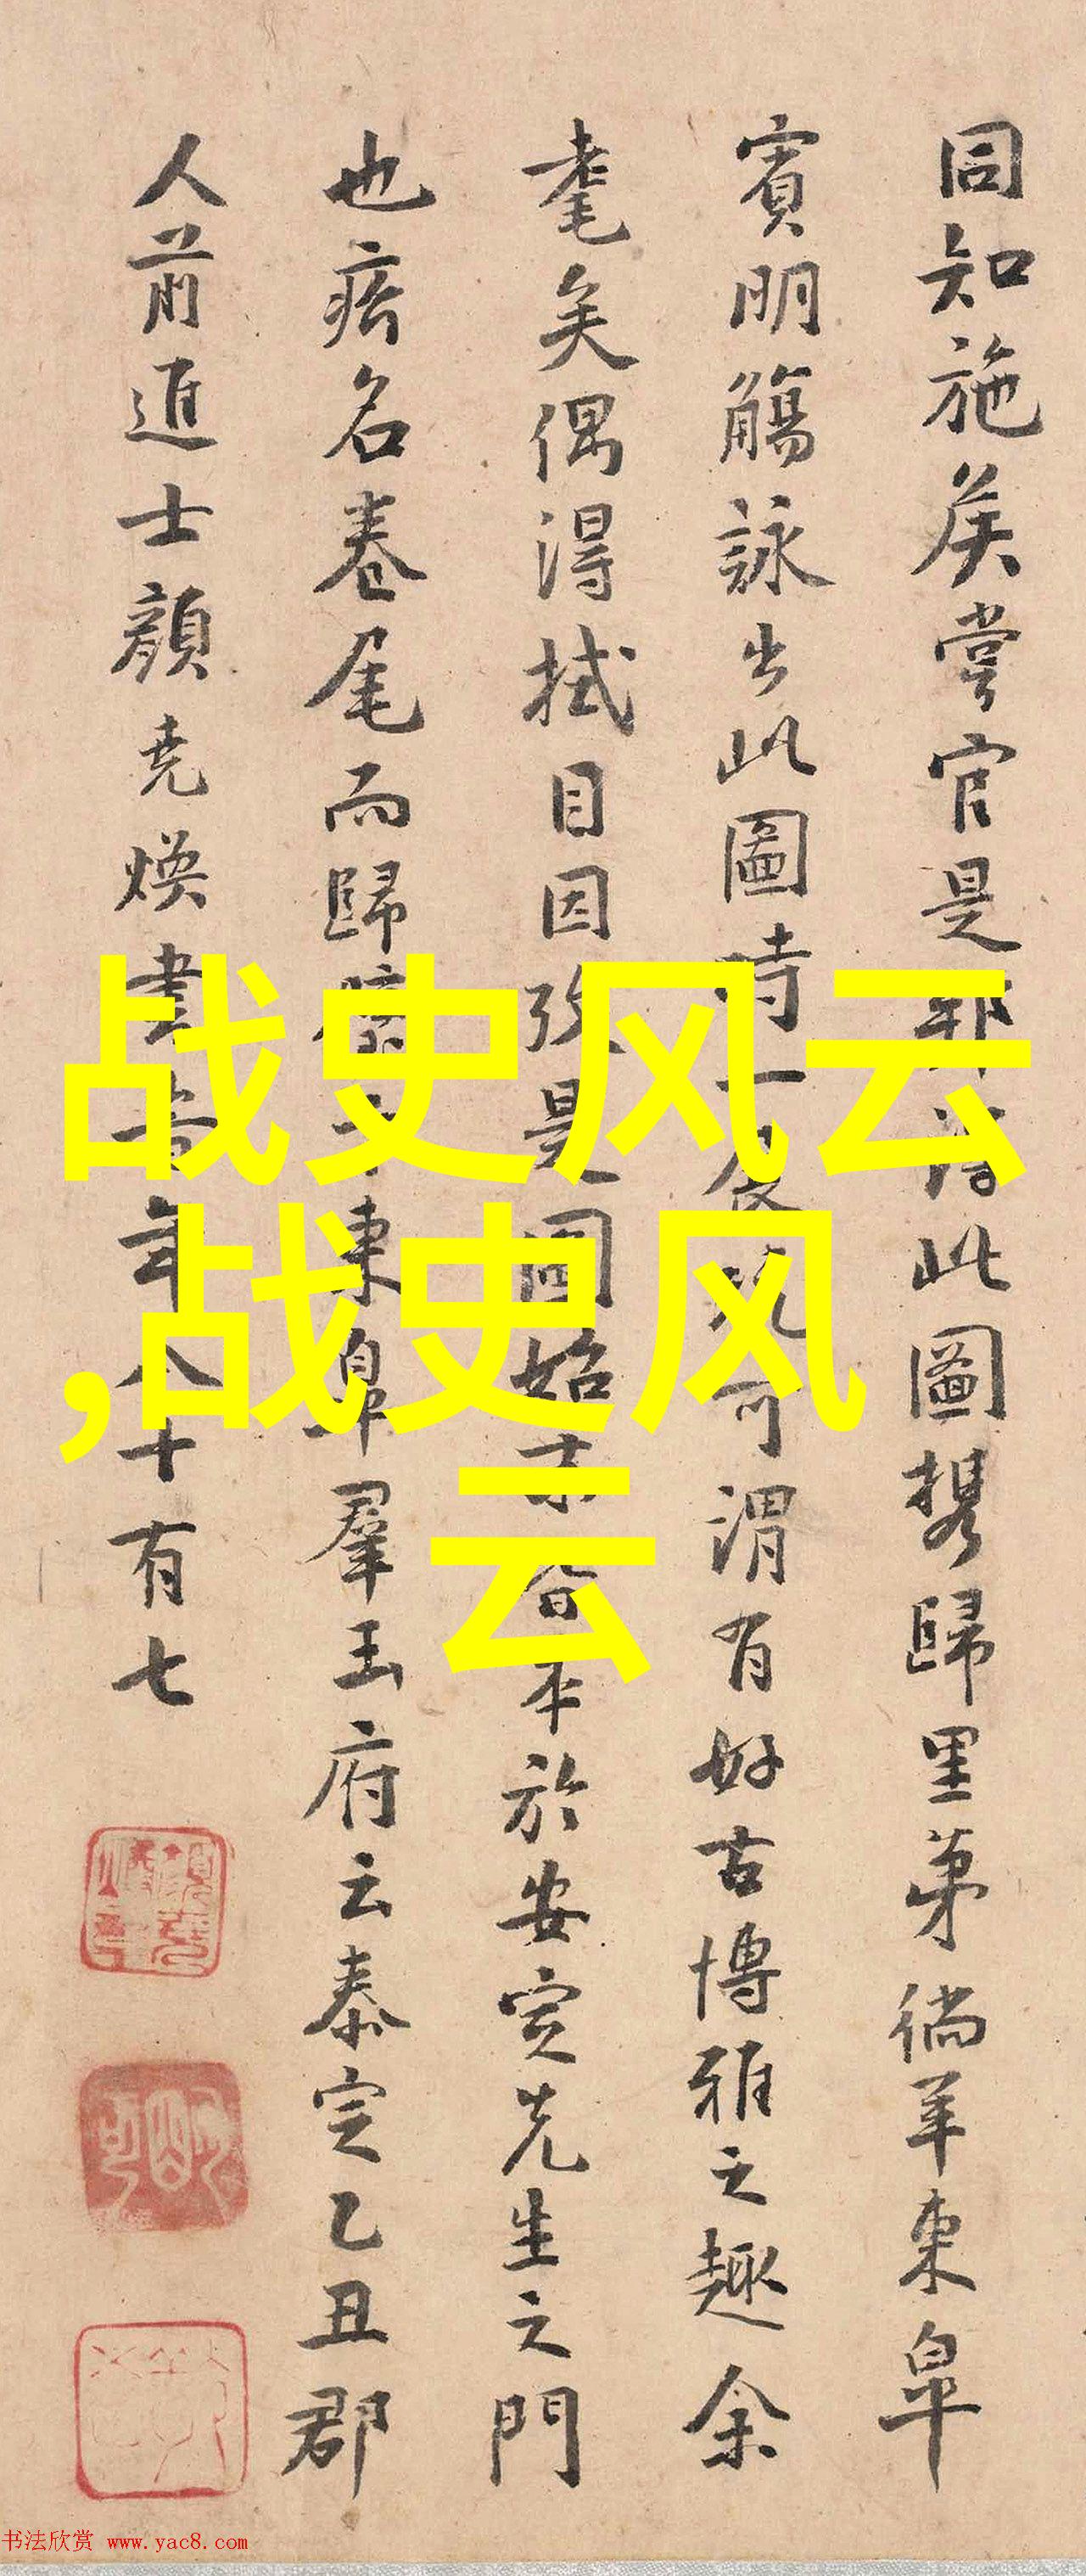 同知施侯嘗官是邦得此圖携歸里第徜羊東皐
賓明觴詠出此圖時一展玩可謂有好古博雅之趣余
耄矣偶得拭目因攷是圖始末皆本於安定先生之門
也瘖名卷尾而歸
東皐羣玉府云泰定乙丑郡
人前進士顔堯煥書旹年八十有七
战史风云
,战史风
云
书法欣赏 www.yac8.com